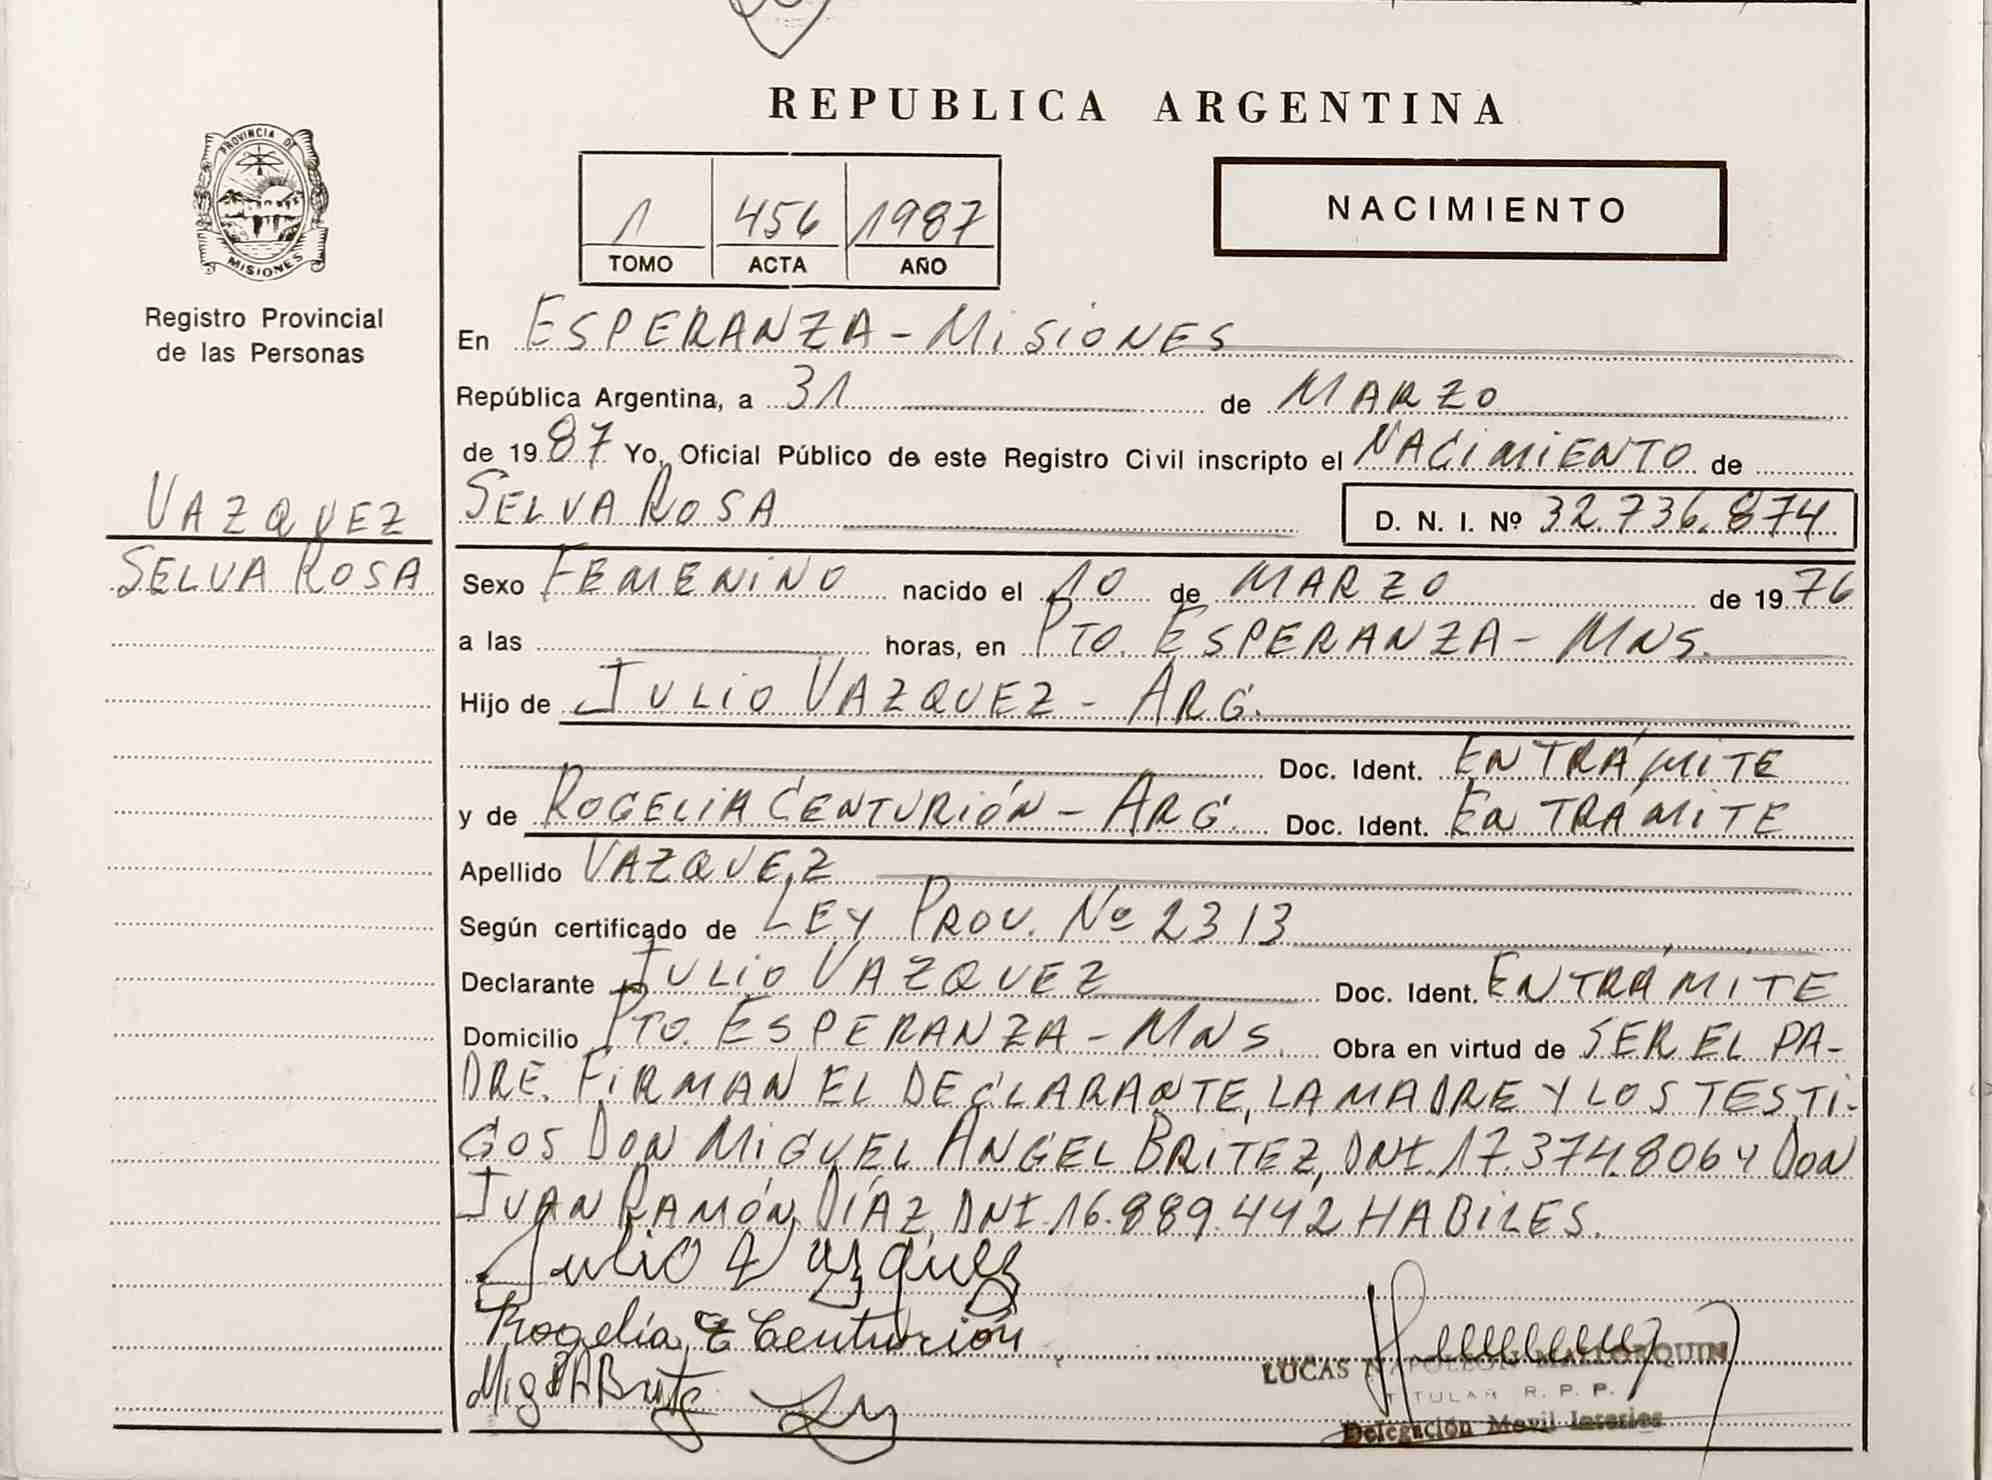 REPUBLICA ARGENTINA
PROVINCIA DE
MISIONES
Registro Provincial
de las Personas
1 456 1987
TOMO ACTA AÑO
NACIMIENTO
En ESPERANZA - MISIONES
República Argentina, a 31 de MARZO
de 1987 Yo, Oficial Público de este Registro Civil inscripto el NACIMIENTO de
SELVA ROSA D. N. I. Nº 32.736.874
VAZQUEZ
SELVA ROSA
Sexo FEMENINO nacido el 10 de MARZO de 1976
a las horas, en PTO. ESPERANZA - MNS.
Hijo de JULIO VAZQUEZ - ARG.
Doc. Ident. EN TRÁMITE
y de ROGELIA CENTURIÓN - ARG. Doc. Ident. EN TRÁMITE
Apellido VAZQUEZ
Según certificado de LEY PROV. Nº 2313
Declarante JULIO VAZQUEZ Doc. Ident. EN TRÁMITE
Domicilio PTO. ESPERANZA - MNS. Obra en virtud de SER EL PA-
DRE. FIRMAN EL DECLARANTE, LA MADRE Y LOS TESTI-
GOS DON MIGUEL ANGEL BRITEZ, DNI. 17.374.806 Y DON
JUAN RAMÓN DÍAZ, DNI. 16.889.442 HABILES.
Julio Vazquez
Rogelia E Centurión
LUCAS NAPOLEON MALLORQUIN
TITULAR R. P. P.
Delegación Movil Interior